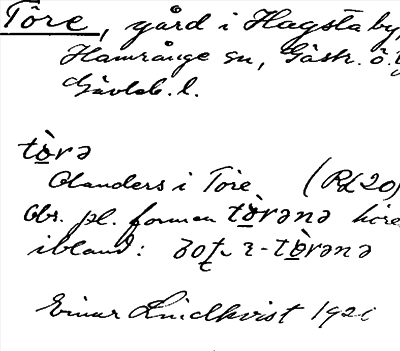 Töre, gård i Hagsta by,
Hamrånge sn, Gästr. ö.
Gävleb. l.
tò̱rə
Olanders i Töre (RL20)
Obs. pl. formen tò̱rənə höres
ibland: i-tò̱rənə
Einar Lindkvist 1921